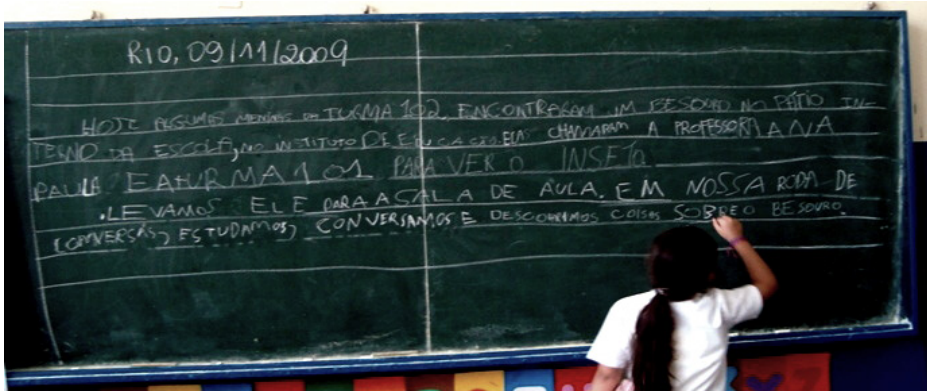 RIO, 09/11/2009
HOJE ALGUMAS MENINAS DA TURMA 102, ENCONTRARAM UM BESOURO NO PÁTIO IN-
TERNO DA ESCOLA, NO INSTITUTO DE EDUCAÇÃO. ELAS CHAMARAM A PROFESSORA ANA
PAULA E A TURMA 101 PARA VER O INSETO.
.LEVAMOS ELE PARA A SALA DE AULA. EM NOSSA RODA DE
CONVERSAS, ESTUDAMOS, CONVERSAMOS E DESCOBRIMOS COISAS SOBRE O BESOURO.